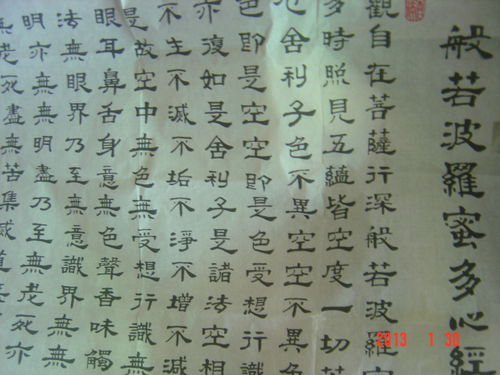 般若波羅蜜多心經
觀自在菩薩行深般若波羅
多時照見五蘊皆空度一切
舍利子色不異空空不異色
色即是空空即是色受想行識
亦復如是舍利子是諸法空相
不生不滅不垢不淨不增不減
是故空中無色無受想行識無
眼耳鼻舌身意無色聲香味觸
法無眼界乃至無意識界無無
明亦無無明盡乃至無老死亦
無老死盡無苦集滅道
2013 1 30